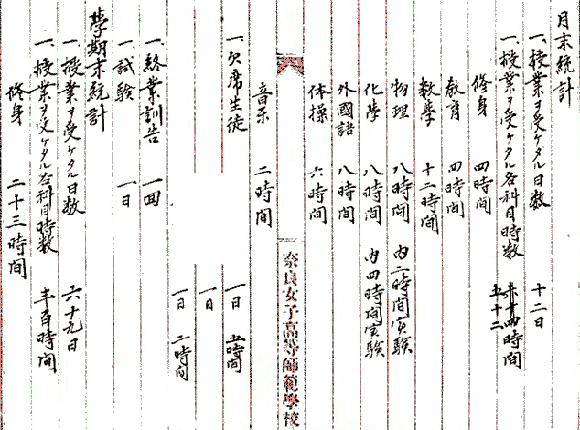 月末統計
一、授業ヲ受ケタル日数 十二日
一、授業ヲ受ケタル各科目時数 五十二時間
修身 四時間
教育 四時間
数學 十二時間
物理 八時間 内二時間実験
化學 八時間 内四時間実験
外國語 八時間
体操 六時間
音楽 二時間
奈良女子高等師範學校
一、欠席生徒 一日 五時間
一日
一日 二時間
一、終業訓告 一回
一試験 一日
學期末統計
一、授業ヲ受ケタル日数 六十九日
一、授業ヲ受ケタル各科目時数 時間
修身 二十三時間